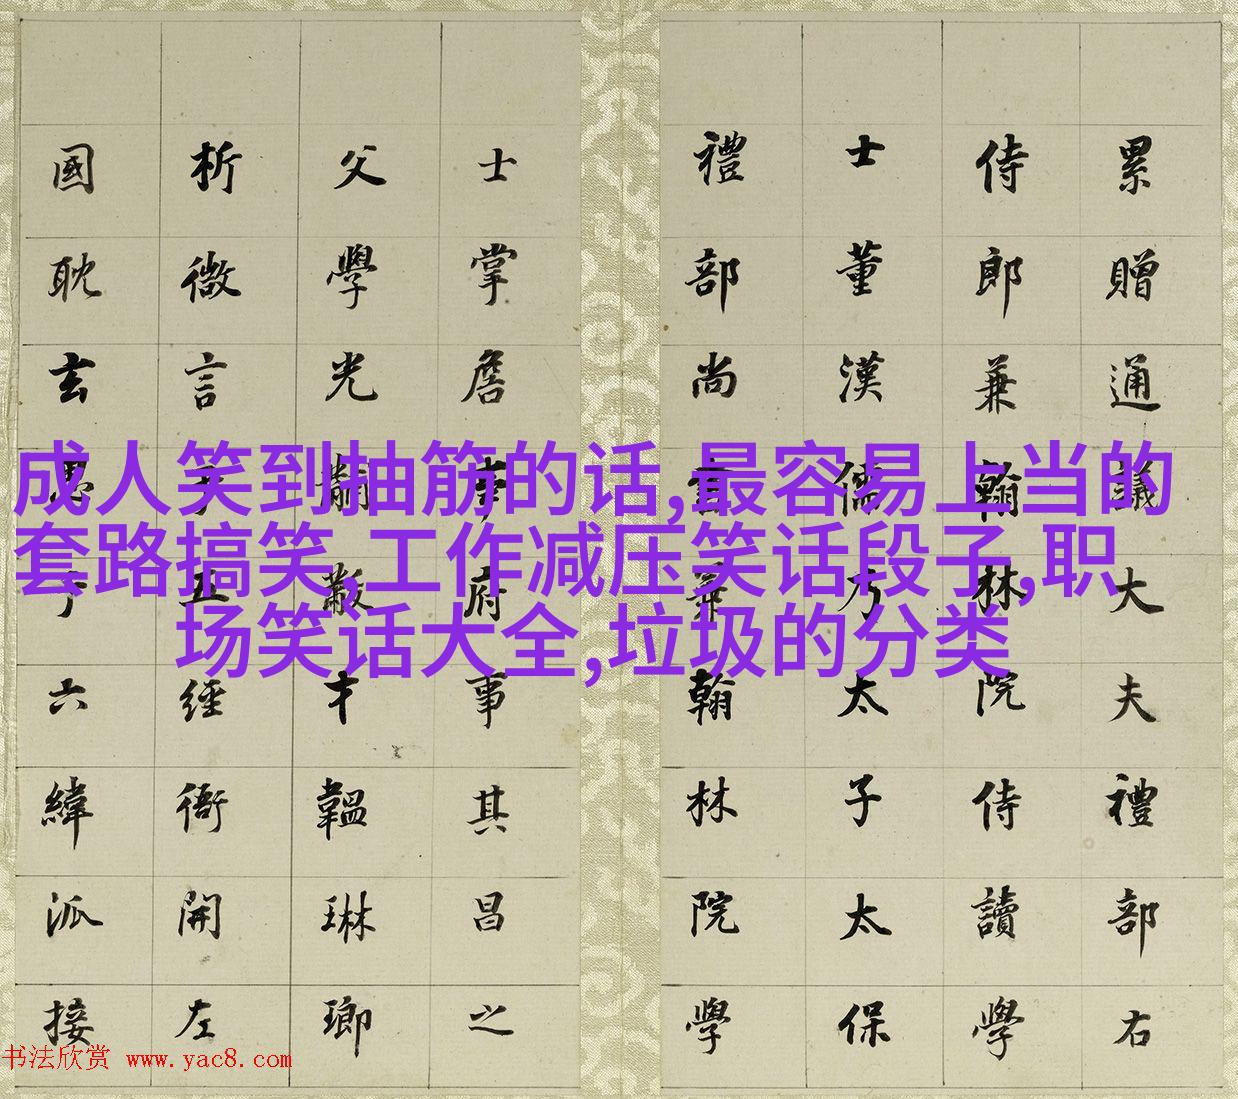 成人笑到抽筋的话,最容易上当的
套路搞笑,工作减压笑话段子,职
场笑话大全,垃圾的分类
累贈通議大夫禮部右
侍郎兼翰林院侍讀學
士董漢儒太子太保
禮部尚書兼翰林院學
士掌詹事府事其昌之
父學光黼黻才韞琳瑯
析微言于五經開左
國耽玄思于六緯派接
书法欣赏 www.yac8.com